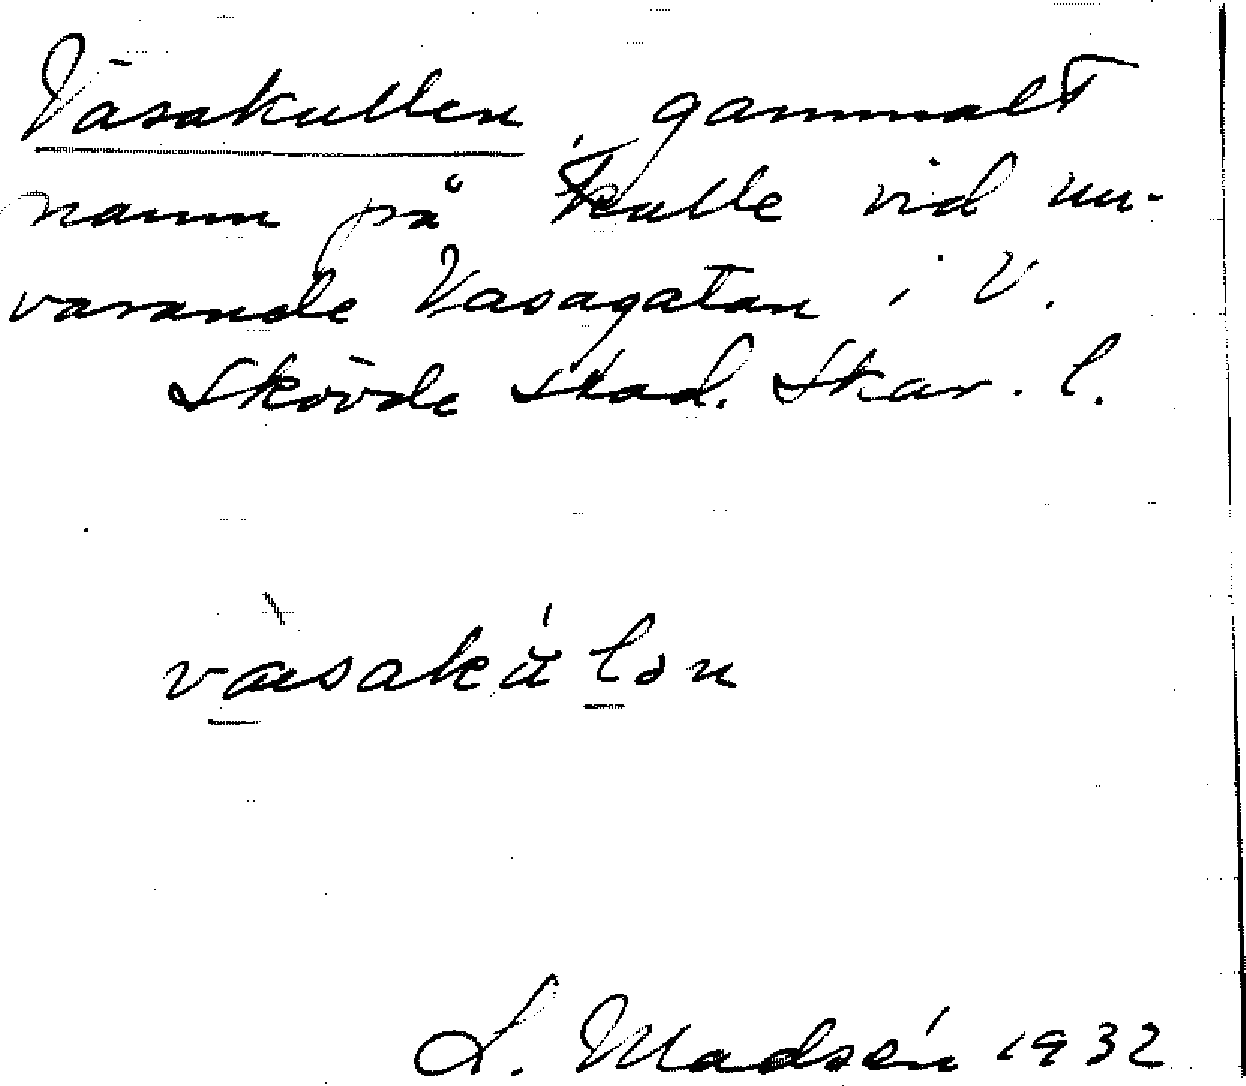 Väsakullen, gammalt
namn på kulle vid nu-
varande Vasagatan i V.
Skövde stad. Skar. l.
væ̀sakú lən
L. Madsén 1932